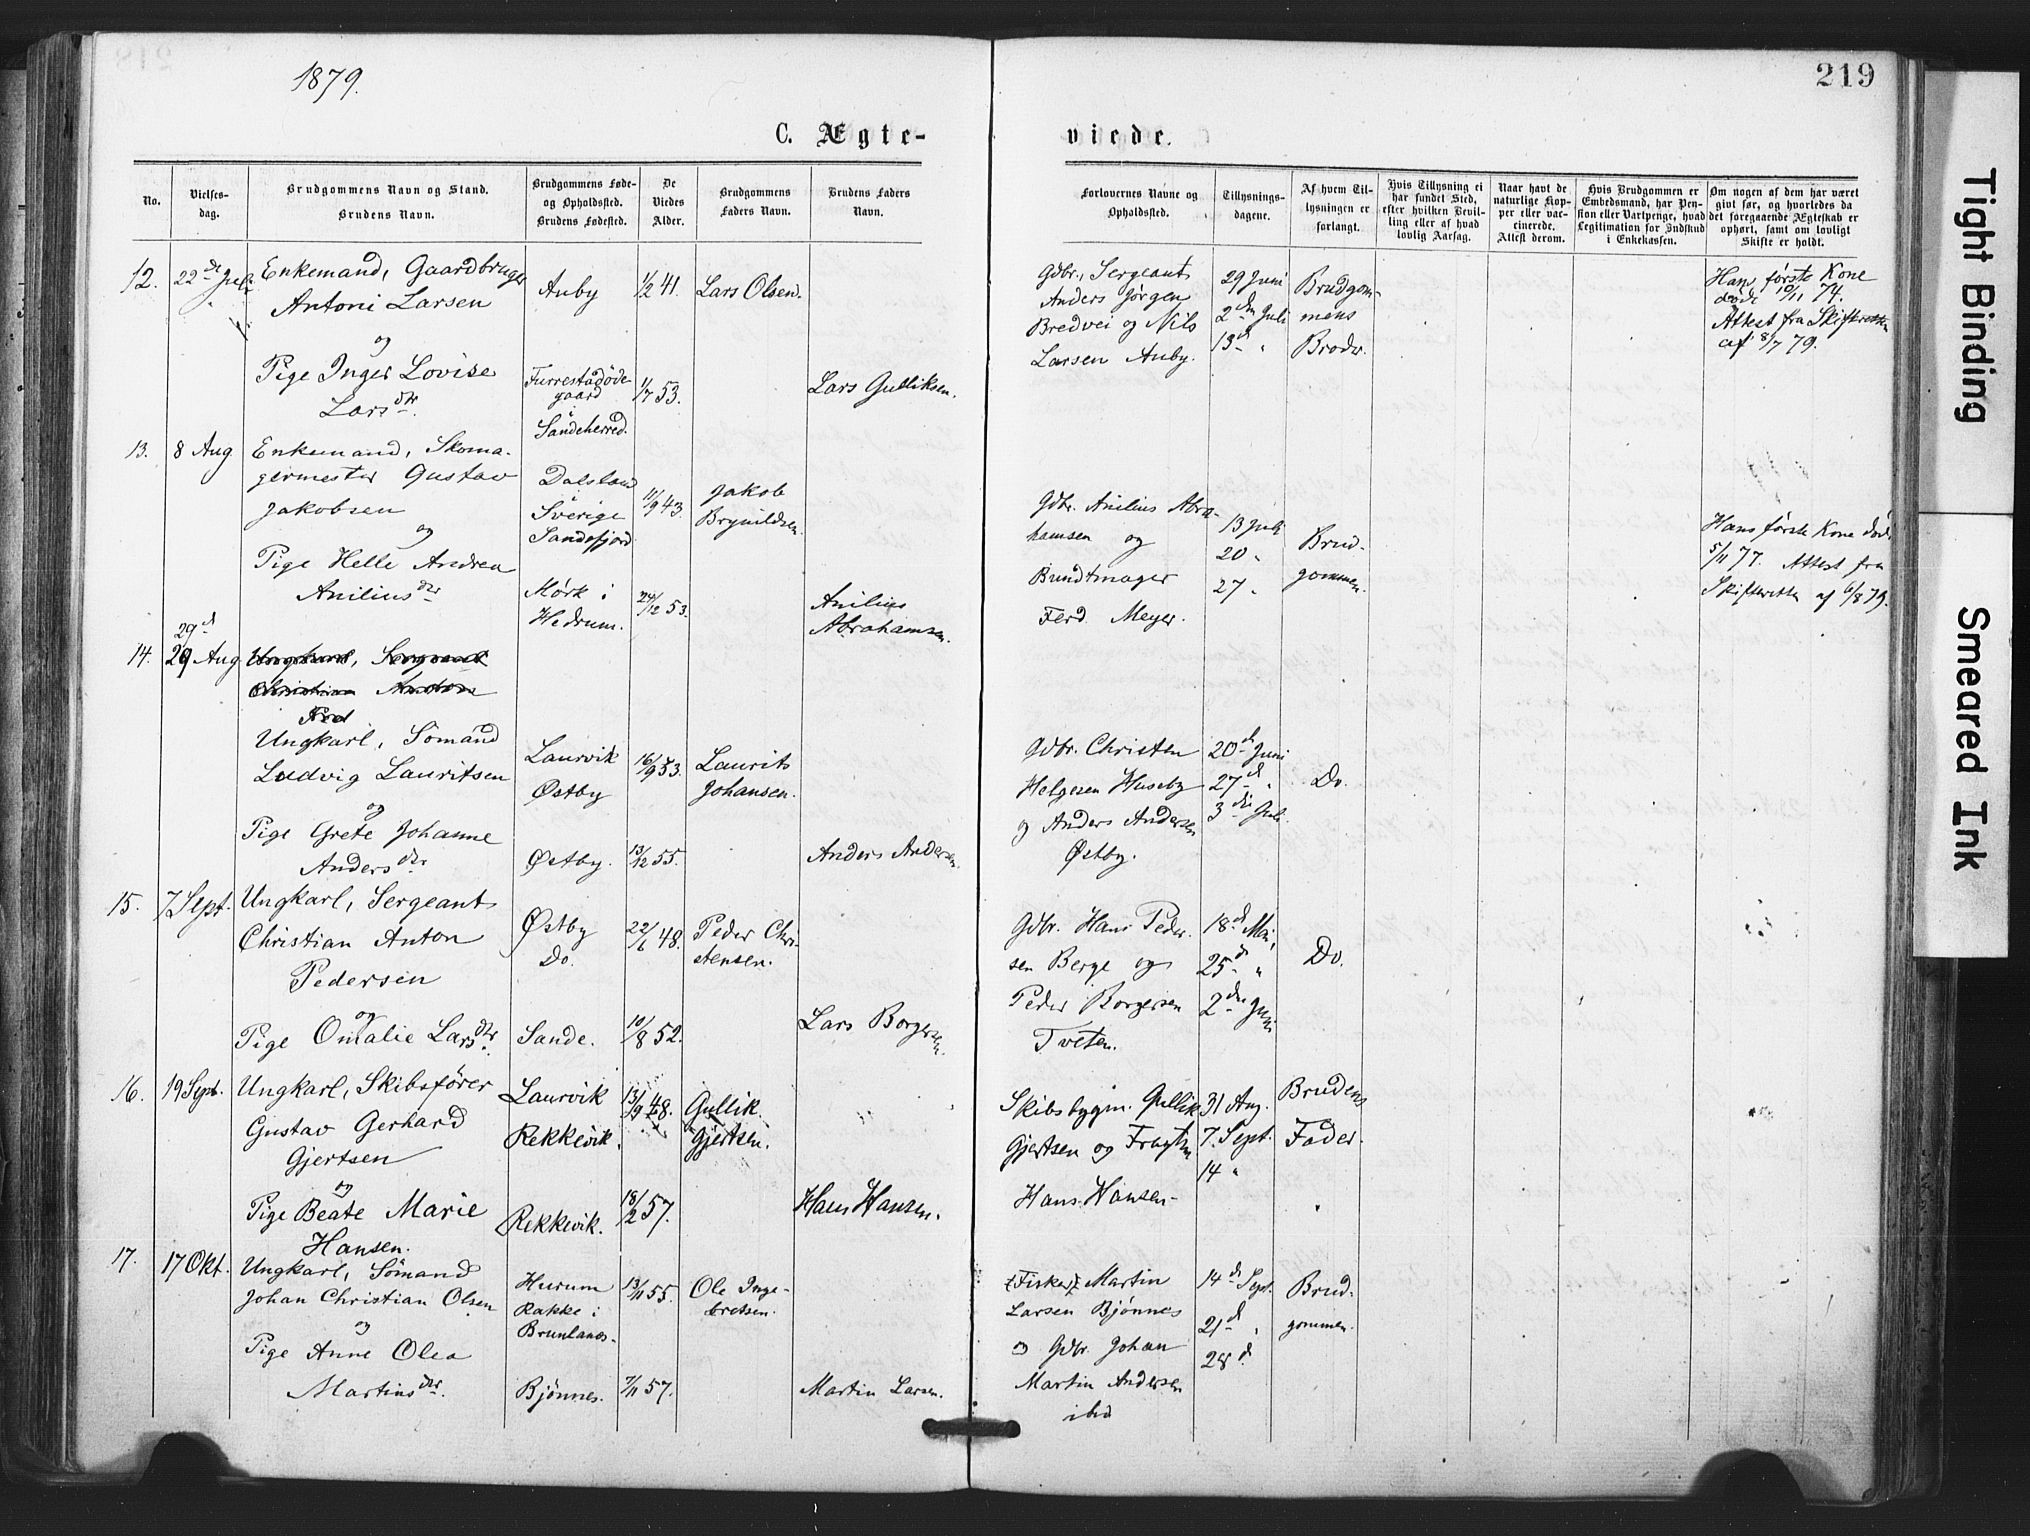 1879.
219
C. Ægte-
viede.
No.
Vielses-
dag.
Brudgommens Navn og Stand.
Brudens Navn.
Brudgommens Føde-
og Opholdssted.
Brudens Fødested.
De
Viedes
Alder.
Brudgommens
Faders Navn.
Brudens Faders
Navn.
Forlovernes Navne og
Opholdssted.
Tillysnings-
dagene.
Af hvem Til-
lysningen er
forlangt.
Hvis Tillysning ei
har fundet Sted,
efter hvilken Bevil-
ling eller af hvad
lovlig Aarsag.
Naar havt de
naturlige Kop-
per eller vac-
cinerede.
Attest derom.
Hvis Brudgommen er
Embedsmand, har Pen-
sion eller Vartpenge, hvad
Legitimation for Indskud
i Enkekassen.
Om nogen af dem har været
givt før, og hvorledes da
det foregaaende Ægteskab er
ophørt, samt om lovligt
Skifte er holdt.
12.
22de Juli
Enkemand, Gaardbruger
Antoni Larsen
og
Pige Inger Lovise
Larsdtr.
Auby
Furrestadøde-
gaard
Sandeherred.
1/2 41.
1/7 53.
Lars Olsen.
Lars Gulliksen.
Gdbr., Sergeant
Anders Jørgen
Bredvei og Nils
Larsen Auby.
29 Juni
2den Juli
13d "
Brudgom-
mens
Broder.
Hans første Kone
døde 10/11 74.
Attest fra Skifteretten
af 8/7 79.
13.
8 Aug
Enkemand, Skoma-
germester Gustav
Jakobsen
og
Pige Helle Andrea
Aniliusdtr
Dalsland
Sverige
Sandefjord
Mørk i
Hedrum.
11/9 43.
24/12 53.
Jakob
Brynildsen
Anilius
Abrahamsen.
Gdbr. Anilius Abra-
hamsen og
Bundtmager
Ferd. Meyer.
13 Juli
20 "
27 "
Brud-
gommen.
Hans første Kone død
5/11 77. Attest fra
Skifteretten af 6/8 79.
29d
14.
29 Aug
Ungkarl, Sergeant
Christian Anton
Ungkarl, Sømand
Ludvig Lauritsen
og
Pige Grete Johanne
Andersdtr.
Laurvik
Østby
Østby.
16/9 53.
13/12 55.
Laurits
Johansen.
Anders Andersen.
Gdbr. Christen
Helgesen Huseby
og Anders Andersen
Østby.
20de Juni
27d "
3die Juli
Do.
15.
7 Sept.
Ungkarl, Sergeant
Christian Anton
Pedersen
og
Pige Omalie Larsdtr.
Østby
Do.
Sande.
22/6 48.
10/8 52.
Peder Chri-
stensen.
Lars Borgersen.
Gdbr. Hans Peder-
sen Berge og
Peder Borgersen
Tveten.
18d Mai,
25d "
2den Juni
Do.
16.
19 Sept.
Ungkarl, Skibsfører
Gustav Gerhard
Gjertsen
og
Pige Beate Marie
Hansen.
Laurvik
Rekkevik.
Rekkevik.
13/9 48.
18/2 57.
Gullik
Gjertsen.
Hans Hansen.
Skibsbygm. Gullik
Gjertsen og Fragtm
Hans Hansen-
31 Aug.
7. Sept.
14 "
Brudens
Fader.
17.
17 Okt.
Ungkarl, Sømand
Johan Christian Olsen
og
Pige Anne Olea
Martinsdtr.
Hurum
Rakke i
Brunlanæs-
Bjønnes.
13/11 55.
7/11 57.
Ole Inge-
bretsen.
Martin Larsen.
Fisker Martin
Larsen Bjønnes
og Gdbr. Johan
Martin Andersen
ibid
14d Sept.
21d "
28d.
Brud-
gommen.
Tight Binding
Smeared Ink